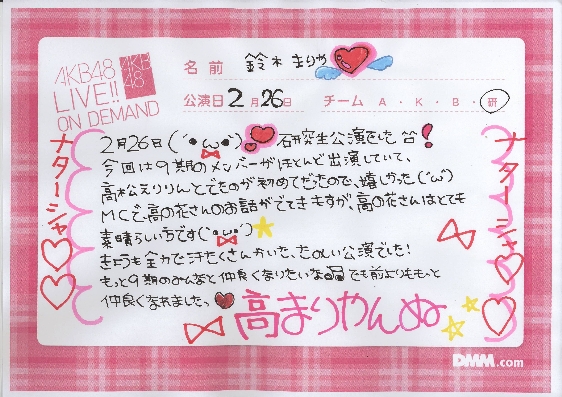 AKB48
LIVE!!
ON DEMAND
AKB
48
名前 鈴木まりや
公演日 2月26日 チーム A・K・B・研
2月26日(´•ω•`) 研究生公演でした
今回は9期のメンバーがほとんど出演していて、
高松えりりんとでたのが初めてだったので、嬉しかった(´ω`)
MCで、高の花さんのお話がでてきますが、高の花さんはとても
素晴らしい方です(´•ω•`)
きょうも全力で汗たくさんかいた、たのしい公演でした!
もっと9期のみんなと仲良くなりたいな でも前よりももっと
仲良くなれましたっ
高まりやんぬ
ナターシャ
ナターシャ
DMM.com